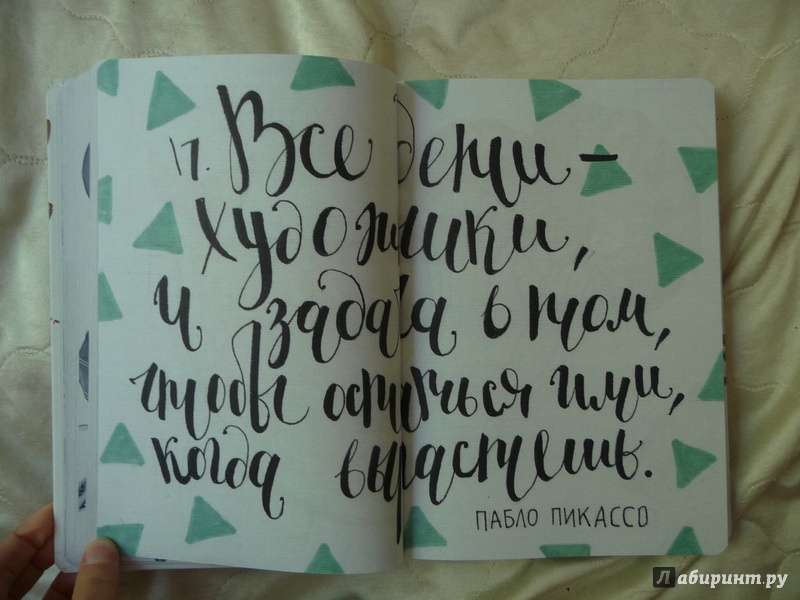 17. Все дети –
художники,
и задача в том,
чтобы остаться ими,
когда вырастешь.
ПАБЛО ПИКАССО
Лабиринт.ру